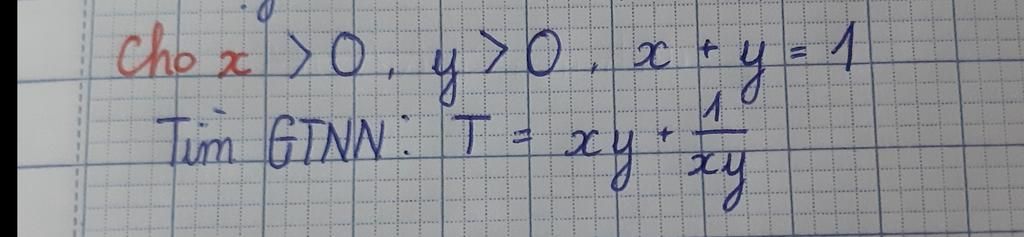 Cho x > 0, y > 0, x + y = 1
Tìm GTNN: T = xy + 1/xy